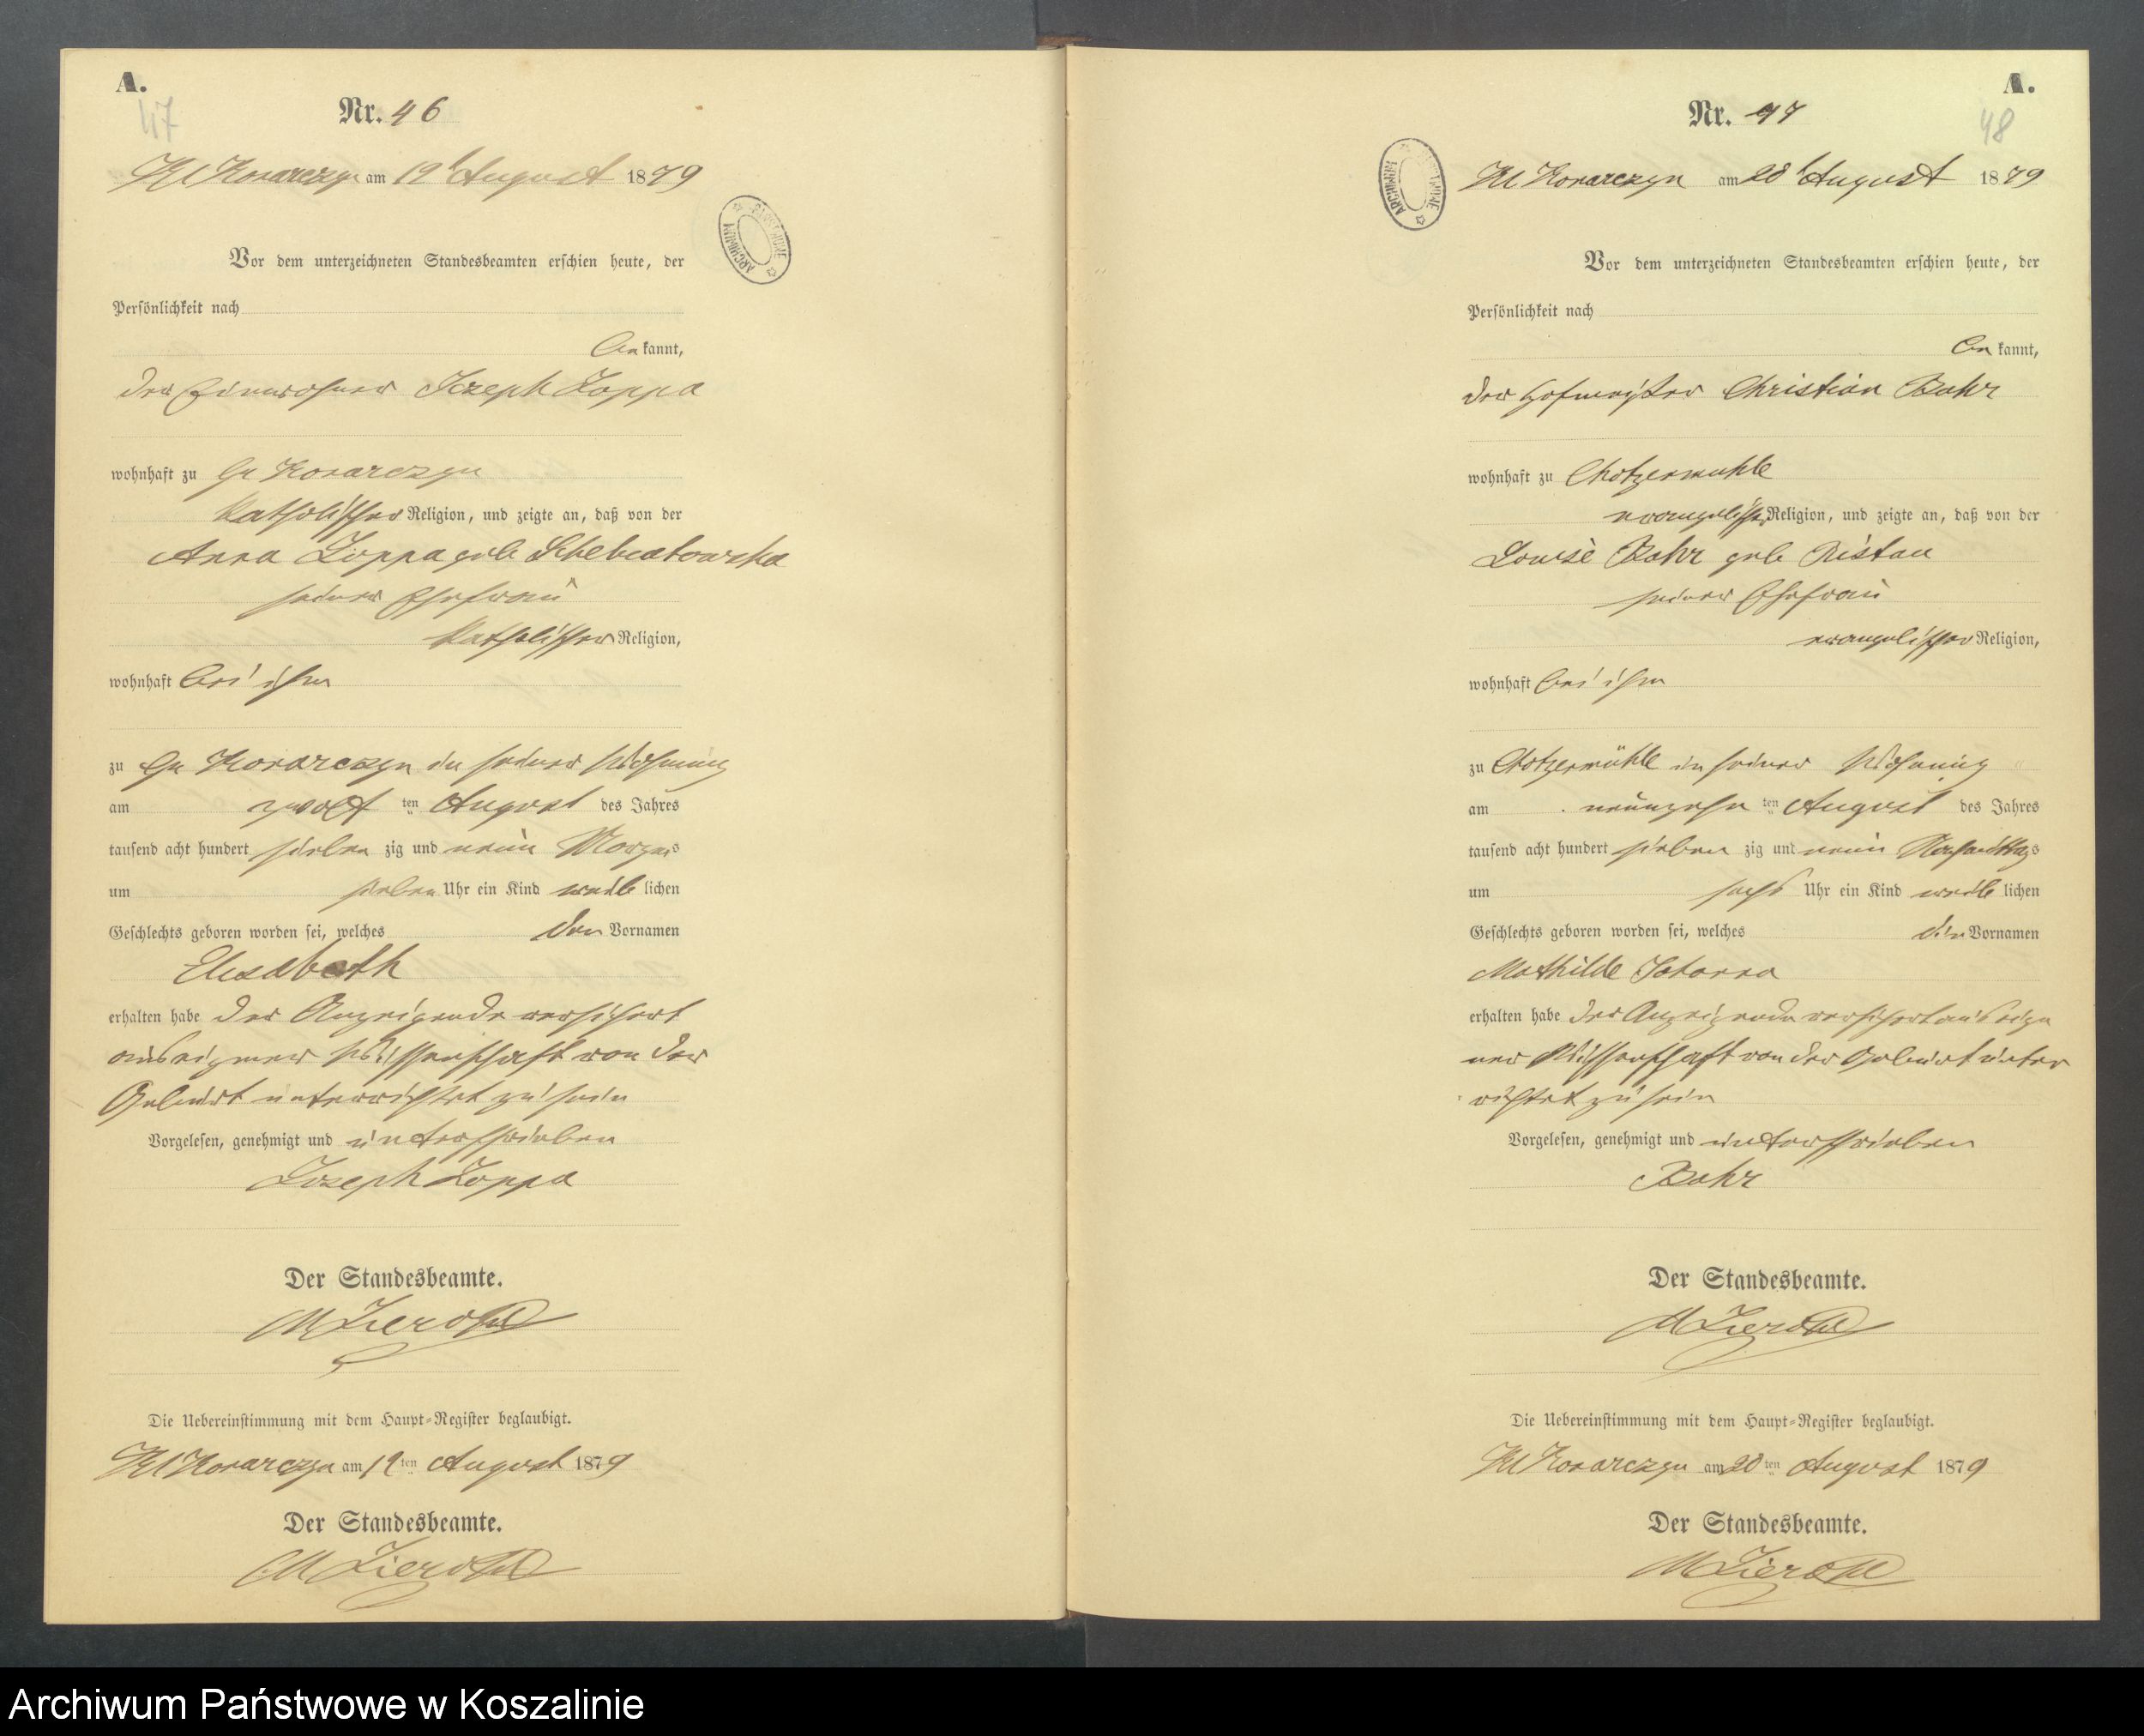 A.
47
Nr. 46
Kl Konarczyn am 12t August 1879
ARCHIWUM PAŃSTWOWE
Vor dem unterzeichneten Standesbeamten erschien heute, der
Persönlichkeit nach
be kannt,
der Einwohner Jozeph Zoppa
wohnhaft zu Gr Konarczyn
katholischer Religion, und zeigte an, daß von der
Anna Zoppa geb
seiner Ehefrau
katholischer Religion,
wohnhaft bei ihm
zu Gr Konarczyn in seiner Wohnung
am zwölf ten August des Jahres
tausend acht hundert sieben zig und neun Morgens
um sieben Uhr ein Kind weib lichen
Geschlechts geboren worden sei, welches den Vornamen
Elisabeth
erhalten habe der Anzeigende versichert
aus eigener Wissenschaft von der
Geburt unterrichtet zu sein
Vorgelesen, genehmigt und unterschrieben
Jozeph Zoppa
Der Standesbeamte.
Die Uebereinstimmung mit dem Haupt-Register beglaubigt.
Kl Konarczyn am 12 ten August 1879
Der Standesbeamte.
A.
48
Nr. 47
Kl Konarczyn am 20t August 1879
ARCHIWUM PAŃSTWOWE
Vor dem unterzeichneten Standesbeamten erschien heute, der
Persönlichkeit nach
be kannt,
der Hofmeister Christian Bahr
wohnhaft zu Chotzenmühle
evangelischer Religion, und zeigte an, daß von der
Louise Bahr geb Ristau
seiner Ehefrau
evangelischer Religion,
wohnhaft bei ihm
zu Chotzenmühle in seiner Wohnung
am neunzehn ten August des Jahres
tausend acht hundert sieben zig und neun Nachmittags
um sechs Uhr ein Kind weib lichen
Geschlechts geboren worden sei, welches die Vornamen
Mathilde
erhalten habe der Anzeigende versichert aus eige
ner Wissenschaft von der Geburt unter
richtet zu sein
Vorgelesen, genehmigt und unterschrieben
Bahr
Der Standesbeamte.
Die Uebereinstimmung mit dem Haupt-Register beglaubigt.
Kl Konarczyn am 20 ten August 1879
Der Standesbeamte.
Archiwum Państwowe w Koszalinie